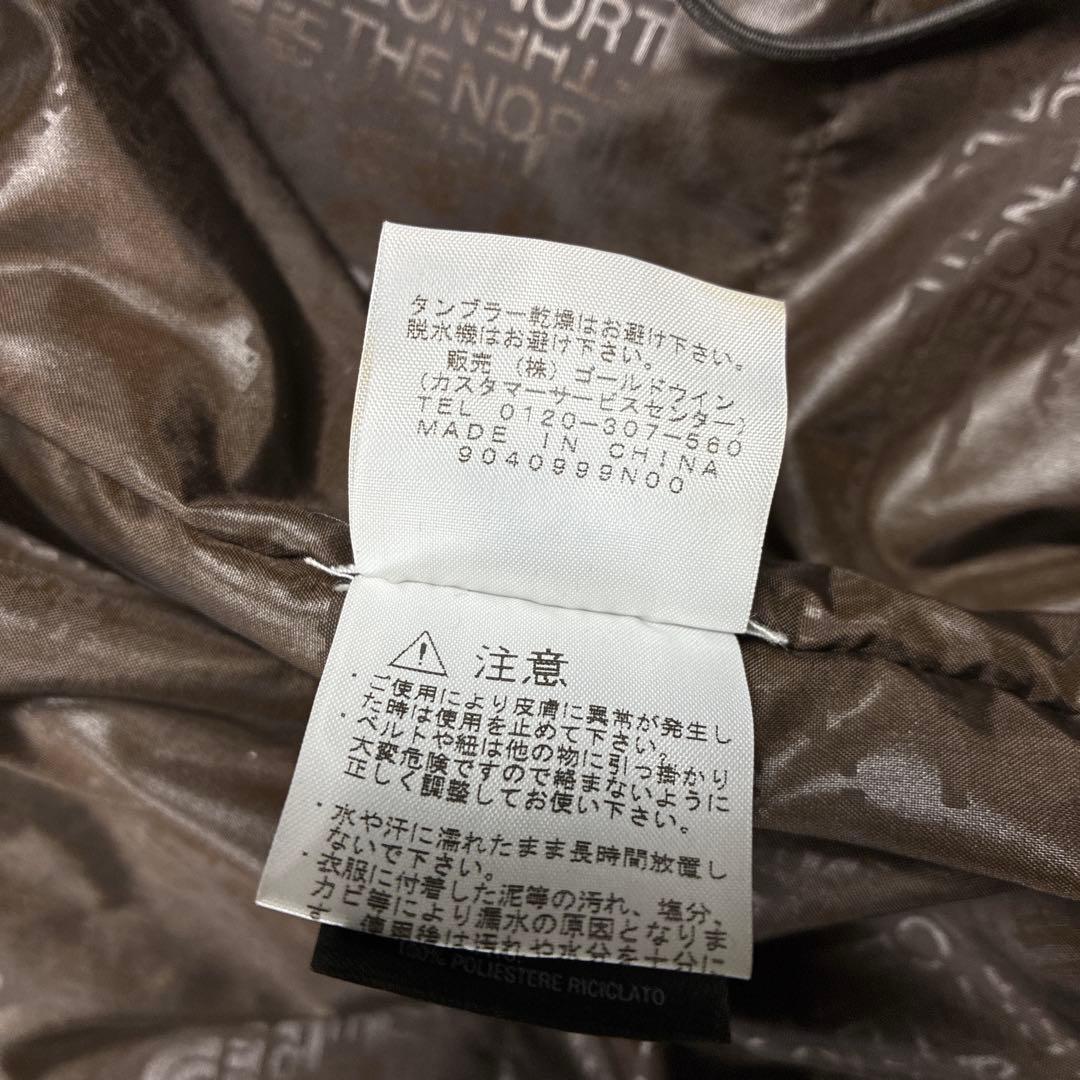 NORTH
THE NOR
タンブラー乾燥はお避け下さい。
脱水機はお避け下さい。
販売 (株) ゴールドウイン
(カスタマーサービスセンター)
TEL 0120-307-560
MADE IN CHINA
9040999N00
注意
・ご使用により皮膚に異常が発生し
た時は使用を止めて下さい。
・ベルトや紐は他の物に引っ掛かり
大変危険ですので絡まないように
正しく調整してお使い下さい。
・水や汗に濡れたまま長時間放置し
ないで下さい。
・衣服に付着した泥等の汚れ、塩分、
カビ等により漏水の原因となりま
す。使用後は汚れや水分を十分に
100% POLIESTERE RICICLATO